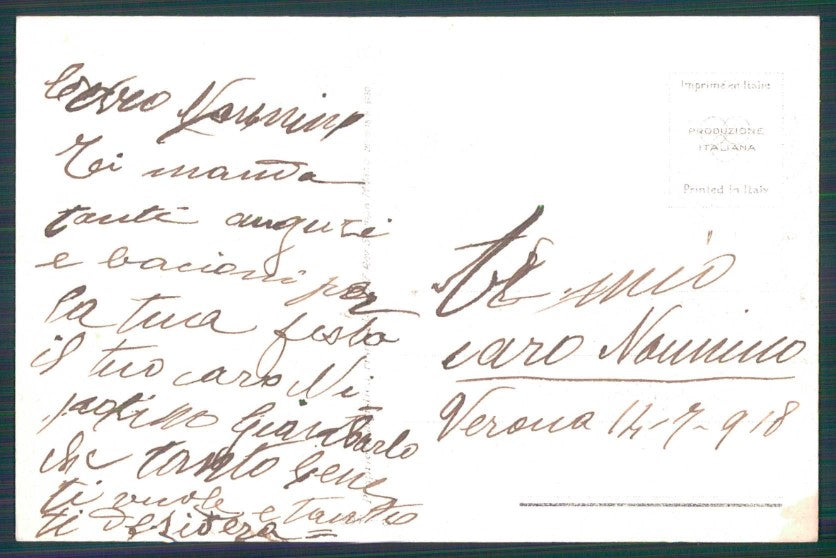 Caro Nonnino
Ti manda
tanti auguri
e bacioni per
la tua festa
il tuo caro Ni=
potino Giancarlo
che tanto bene
ti vuole e tanto
ti desidera=
Imprimé en Italie
PRODUZIONE
ITALIANA
Printed in Italy
Al mio
caro Nonnino
Verona 12-7-918